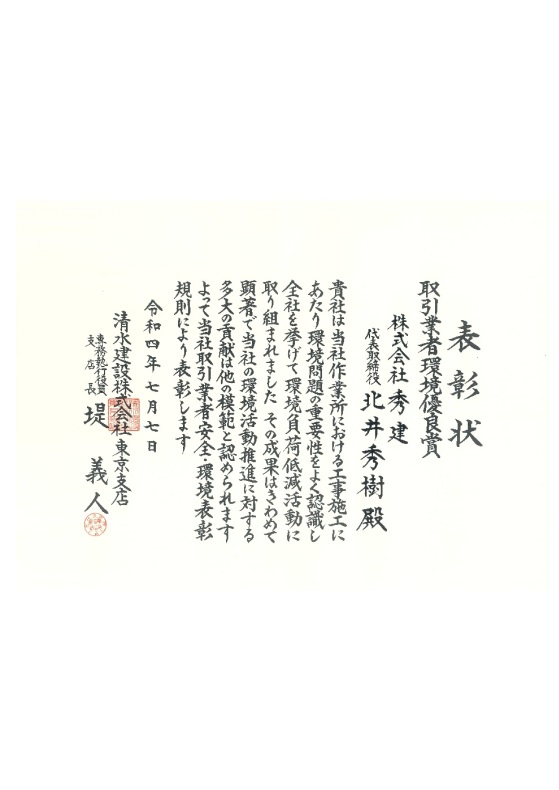 表彰状
取引業者環境優良賞
株式会社 秀建
代表取締役 北井秀樹殿
貴社は当社作業所における工事施工に
あたり環境問題の重要性をよく認識し
全社を挙げて環境負荷低減活動に
取り組まれました その成果はきわめて
顕著で当社の環境活動推進に対する
多大の貢献は他の模範と認められます
よって当社取引業者安全・環境表彰
規則により表彰します
令和四年七月七日
清水建設株式会社 東京支店
専務執行役員
支店長
堤 義人